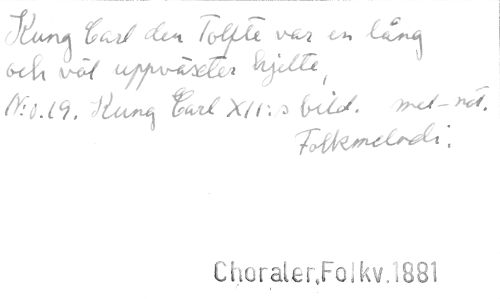 Kung Carl den Tolfte var en lång
och väl uppväxter hjelte,
N:o.19. Kung Carl XII:s bild. mel-not.
Folkmelodi.
Choraler,Folkv.1881